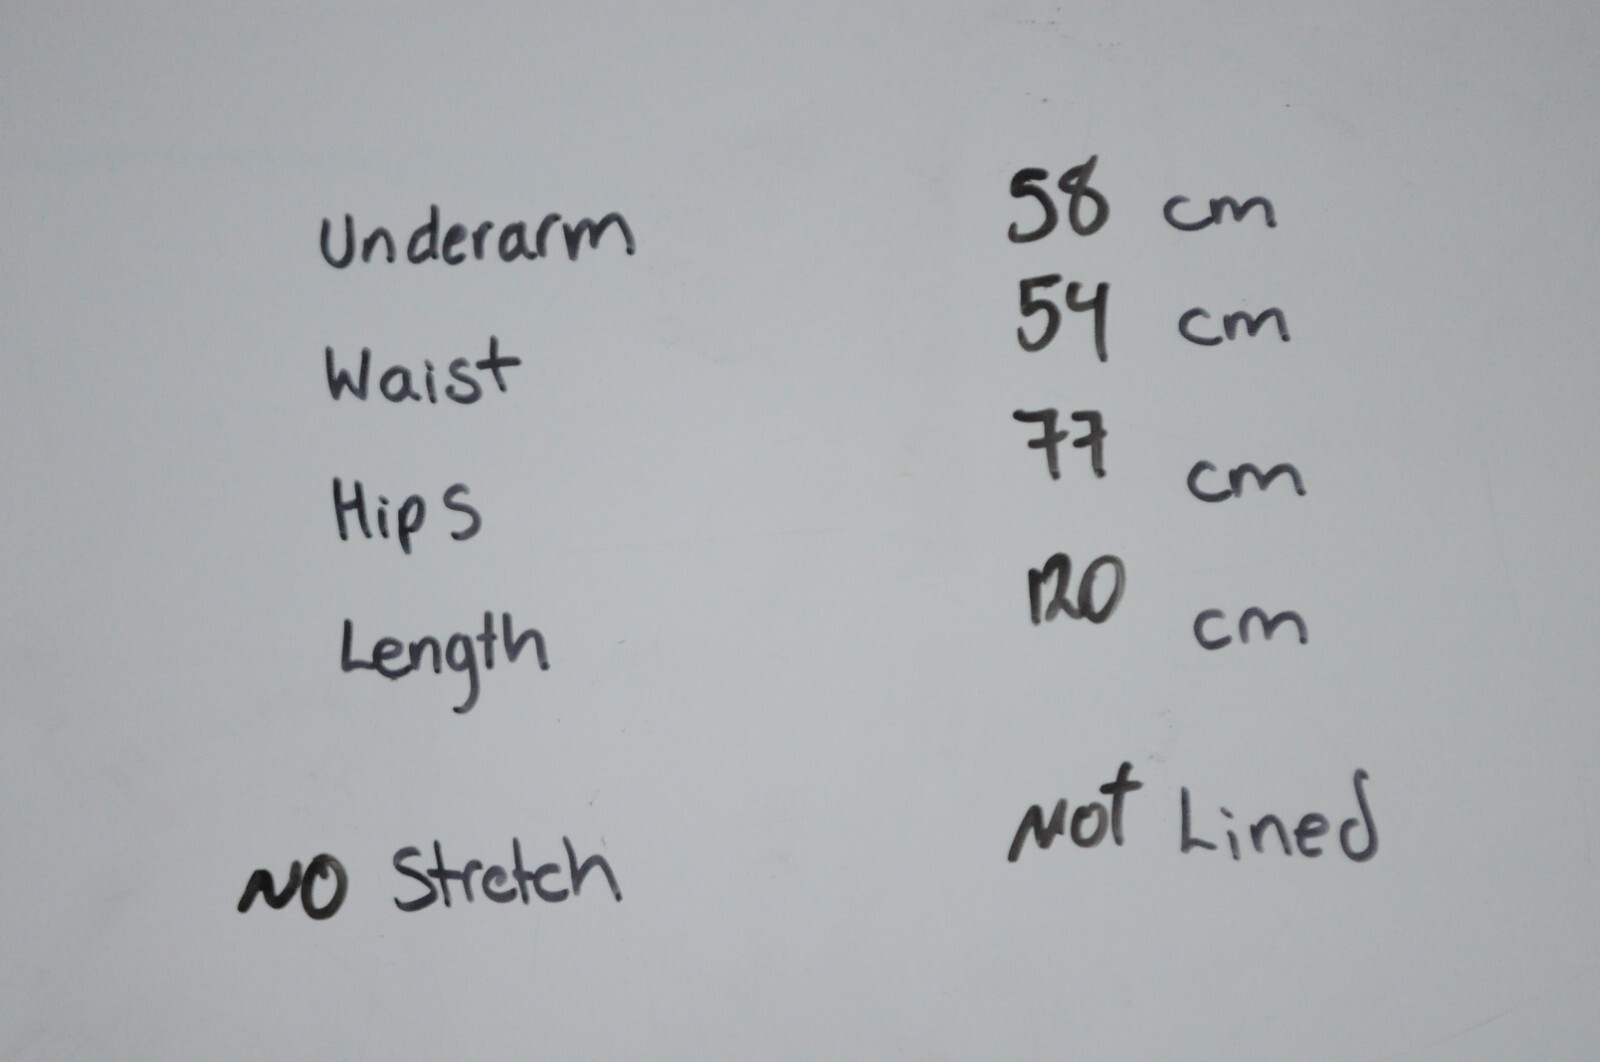 Underarm 58 cm
Waist 54 cm
Hips 77 cm
Length 120 cm
NO Stretch NOT Lined